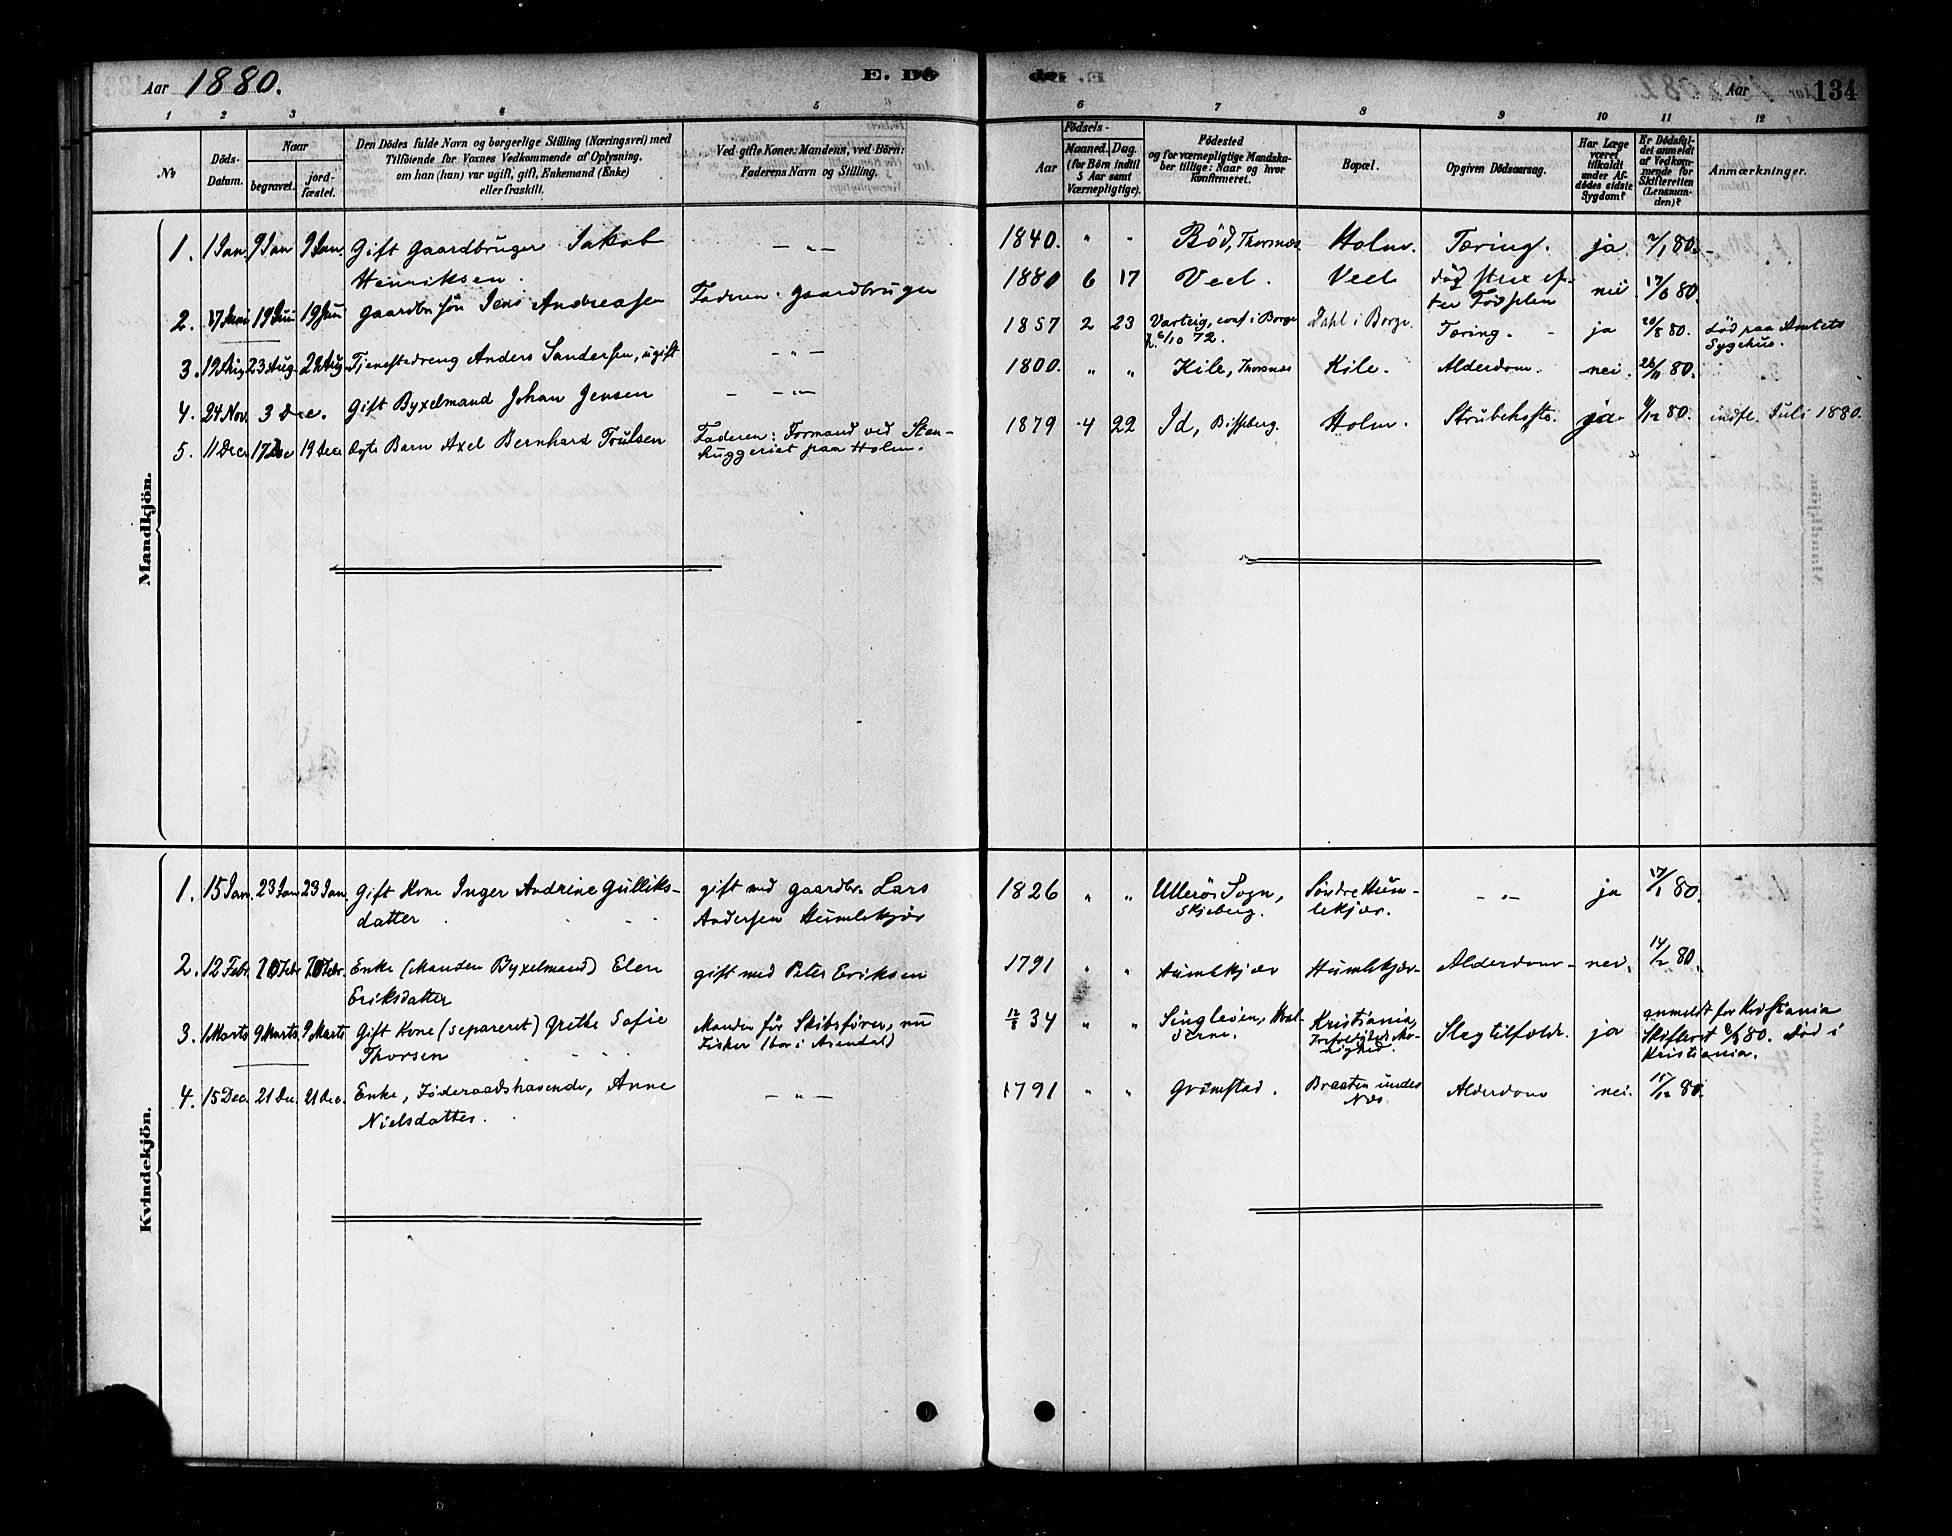 Aar 1880.
E. Dö
Aar
134
1 2 3 4 5
6 7 8 9 10 11 12
№
Döds-
Datum.
Naar
begravet.
jord-
fæstet.
Den Dödes fulde Navn og borgerlige Stilling (Næringsvei) med
Tilföiende for Voxnes Vedkommende af Oplysning,
om han (hun) var ugift, gift, Enkemand (Enke)
eller fraskilt.
Ved gifte Koner: Mandens, ved Börn:
Faderens Navn og Stilling.
Aar
Födsels-
Maaned. Dag.
(for Börn indtil
5 Aar samt
Værnepligtige).
Födested
og for værnepligtige Mandska-
ber tillige: Naar og hvor
Konfirmeret.
Bopæl.
Opgiven Dödsaarsag.
Har Læge
været
tilkaldt
under Af-
dödes sidste
Sygdom?
Er Dödsfal-
det anmeldt
af Vedkom-
mende for
Skifteretten
(Lensman-
den)?
Anmærkninger.
Mandkjön.
1. 1 Jan. 9 Jan 9 Jan. Gift Gaardbruger Jakob
Henriksen. — „ — 1840. " " Böd, Thorsnæs Holm. Tæring. ja 2/1 80.
2. 17 Juni 19 Juni 19 Juni Gaardbr. Sön Jens Andreasen Faderen: Gaardbruger 1880 6 17 Veel. Veel död strax ef-
ter Födselen nei. 17/6 80.
3. 19 Aug 23 Aug. 24 Aug. Tjenestedreng Anders Sandersen, ugift — „ — 1857 2 23 Varteig, conf i Borge
6/10 72. Dahl i Borge. Tæring. ja 20/8 80. död paa Amtets
Sygehus.
4. 24 Nov. 3 Dec. Gift Byxelmand Johan Jensen — „ — 1800. " " Kile, Thorsnæs Kile. Alderdom. nei. 26/11 80.
5. 11 Dec. 17 Dec 19 Dec. ægte Barn Axel Bernhard Trulsen Faderen: Formand ved Sten-
huggeriet paa Holm. 1879 4 22 Id, Holm. Strubehoste. ja /12 80. indfl. Juli 1880.
Kvindekjön.
1. 15 Jan. 23 Jan 23 Jan. Gift Kone Inger Andrine Gulliks-
datter gift med Gaardbr. Lars
Andersen Humlekjær 1826 " " Ullerøi Sogn,
Skjeberg. Söndre Hum-
lekjær. — „ — ja 17/1 80.
2. 12 Febr. 20 Febr. 20 Febr. Enke (Manden Byxelmand) Elen
Eriksdatter gift med Peter Eriksen 1791 " " Humlekjær Humlekjær. Alderdom nei. 14/2 80.
3. 1 Marts 9 Marts 9 Marts Gift Kone (separeret) Grethe Sofie
Thorsen Manden för Skibsförer, nu
Fisker (bor i Arendal) 12/8 34 " " Singleöen, Hval-
öerne. Kristiania, Slagtilfælde. ja anmeldt for Kristiania
Skifteret 80. död i
Kristiania.
4. 15 Dec. 21 Dec. 21 Dec. Enke, Föderaadshavende, Anne
Nielsdatter. — „ — 1791 " " Grimstad. Braaten under
Næs Alderdom nei. 15/12 80.